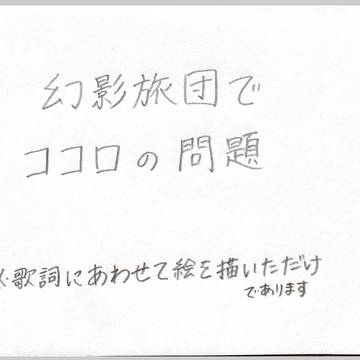 幻影旅団で
ココロの問題
歌詞にあわせて絵を描いただけ
であります